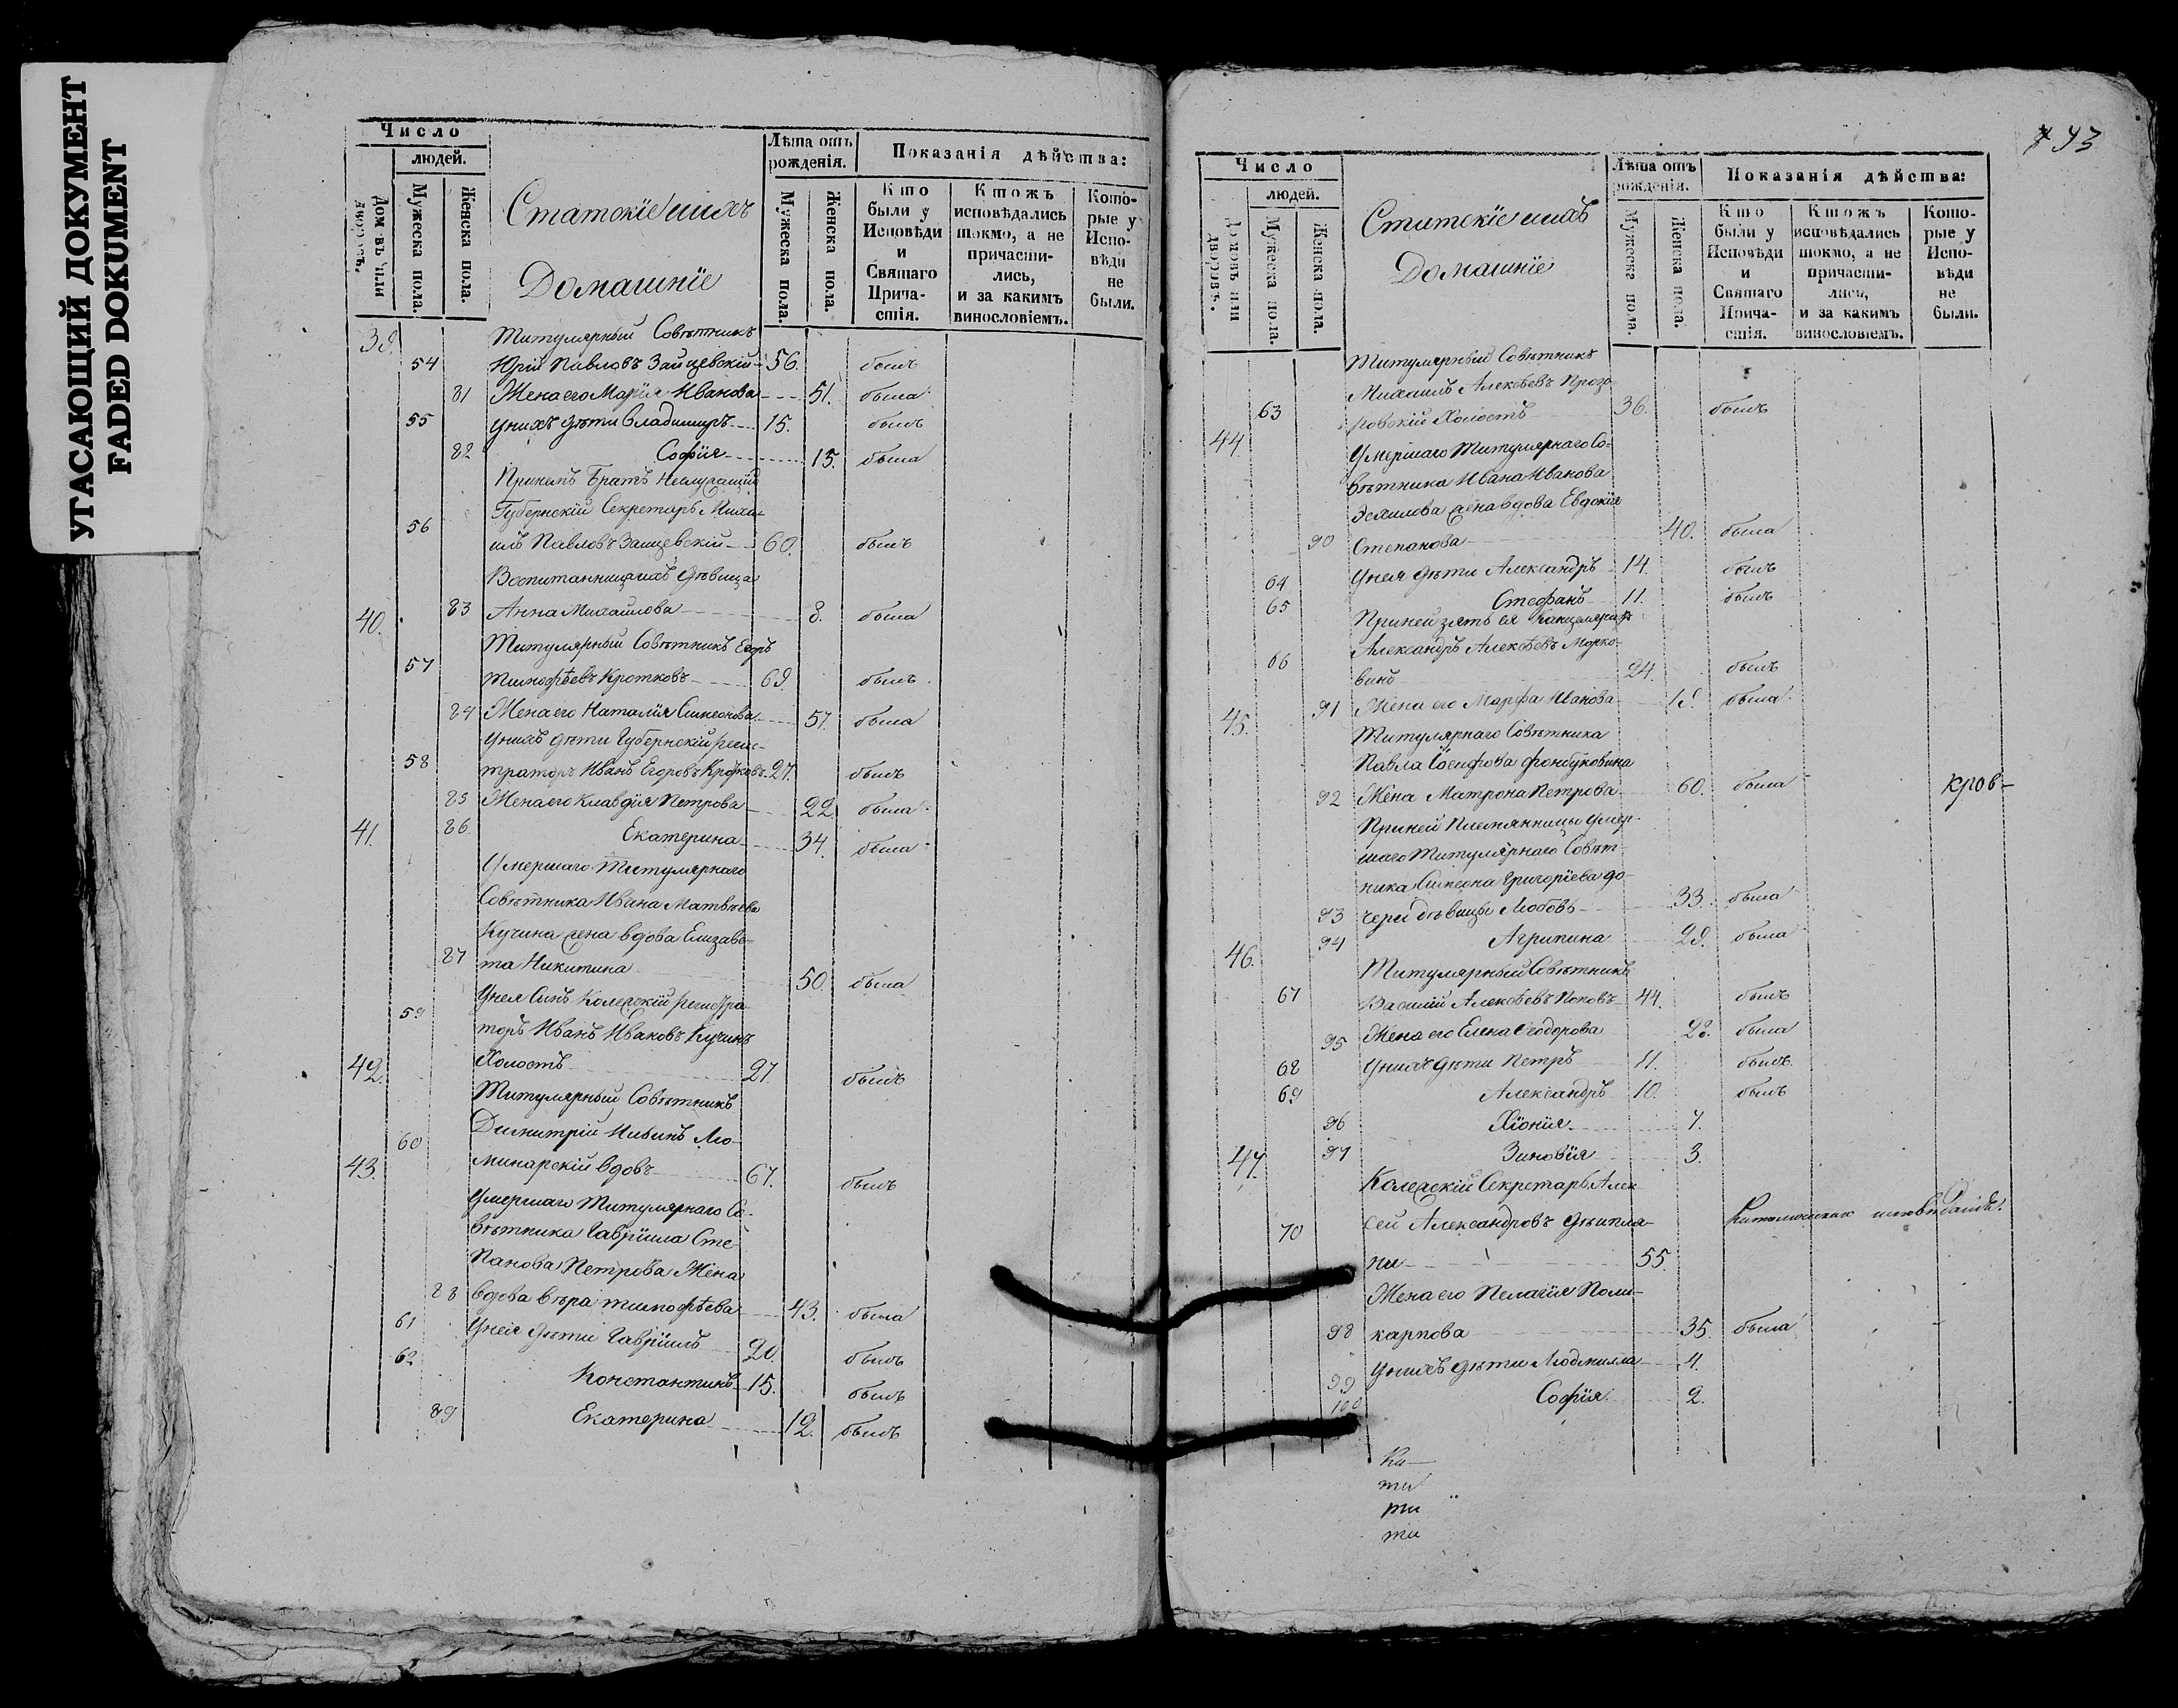 УГАСАЮЩИЙ ДОКУМЕНТ
FADED DOKUMENT
Число
людей.
Дом въ или дворовъ.
Мужеска пола.
Женска пола.
Статскіе ихъ
Домашніе
Лѣта отъ рожденія.
Мужеска пола.
Женска пола.
Показанія дѣйства:
Кто были у Исповѣди и Святаго Причастія.
Ктожъ исповѣдались токмо, а не причастились, и за какимъ винословіемъ.
Которые у Исповѣди не были.
39. Титулярный Совѣтникъ
54 Юрій Павловъ Зайцевскій 56. былъ
81 Жена его Марія Иванова 51. была
55 У нихъ дѣти Владимиръ 15. былъ
82 Софія 15. была
При немъ Братъ Неслужащій
Губернскій Секретарь Миха-
56 илъ Павловъ Зайцевскій 60. былъ
Воспитанница ихъ дѣвица
83 Анна Михайлова 8. была
40. Титулярный Совѣтникъ Егоръ
57 Тимофѣевъ Кротковъ 69. былъ
84 Жена его Наталія Симеонова 57. была
У нихъ дѣти Губернскій регис-
58 траторъ Иванъ Егоровъ Кротковъ 27. былъ
85 Жена его Клавдія Петрова 22. была
86 Екатерина 34. была
41. Умершаго Титулярнаго
Совѣтника Ивана Матвѣева
Кучина жена вдова Елизаве-
87 та Никитина 50. была
У нея Сынъ Колежскій регистра-
59 торъ Иванъ Ивановъ Кучинъ
Холостъ 27. былъ
42. Титулярный Совѣтникъ
60 Димитрій Ильинъ Лю-
минарскій вдовъ 67. былъ
43. Умершаго Титулярнаго Со-
вѣтника Гавріила Сте-
панова Петрова Жена
88 вдова Вѣра Тимофѣева 43. была
61 У нея дѣти Гавріилъ 20. былъ
62 Константинъ 15. былъ
89 Екатерина 12. былъ
93
Число
людей.
Домовъ или дворовъ.
Мужеска пола.
Женска пола.
Статскіе ихъ
Домашніе
Лѣта отъ рожденія.
Мужеска пола.
Женска пола.
Показанія дѣйства:
Кто были у Исповѣди и Святаго Причастія.
Ктожъ исповѣдались токмо, а не причастились, и за какимъ винословіемъ.
Которые у Исповѣди не были.
Титулярный Совѣтникъ
Михаилъ Алексѣевъ Прозо-
63 ровскій Холостъ 36. былъ
44. Умершаго Титулярнаго Со-
вѣтника Ивана Иванова
жена вдова Евдокія
90 Степанова 40. была
64 У нея дѣти Александръ 14. былъ
65 Стефанъ 11. былъ
При ней зять ея Канцеляристъ
Александръ Алексѣевъ Морко-
66 винъ 24. былъ
91 Жена его Марфа Иванова 19. была
45. Титулярнаго Совѣтника
Павла Іосифова фонбуковина
92 Жена Матрона Петрова 60. была кров-
При ней Племянницы умер-
шаго Титулярнаго Совѣт-
ника Симеона Григоріева до-
93 чери дѣвицы Любовь 33. была
94 Агрипина 29. была
46. Титулярный Совѣтникъ
67 Василій Алексѣевъ Поповъ 44. былъ
95 Жена его Елена Ѳеодорова 28. была
68 У нихъ дѣти Петръ 11. былъ
69 Александръ 10. былъ
96 Хіонія 7.
97 Зиновія 3.
47. Колежскій Секретарь Алек-
70 сѣй Александровъ
55.
Жена его Пелагія Поли-
98 карпова 35. была
99 У нихъ дѣти Людмилла 4.
100 София 2.
Ка-
ти
ти
ти